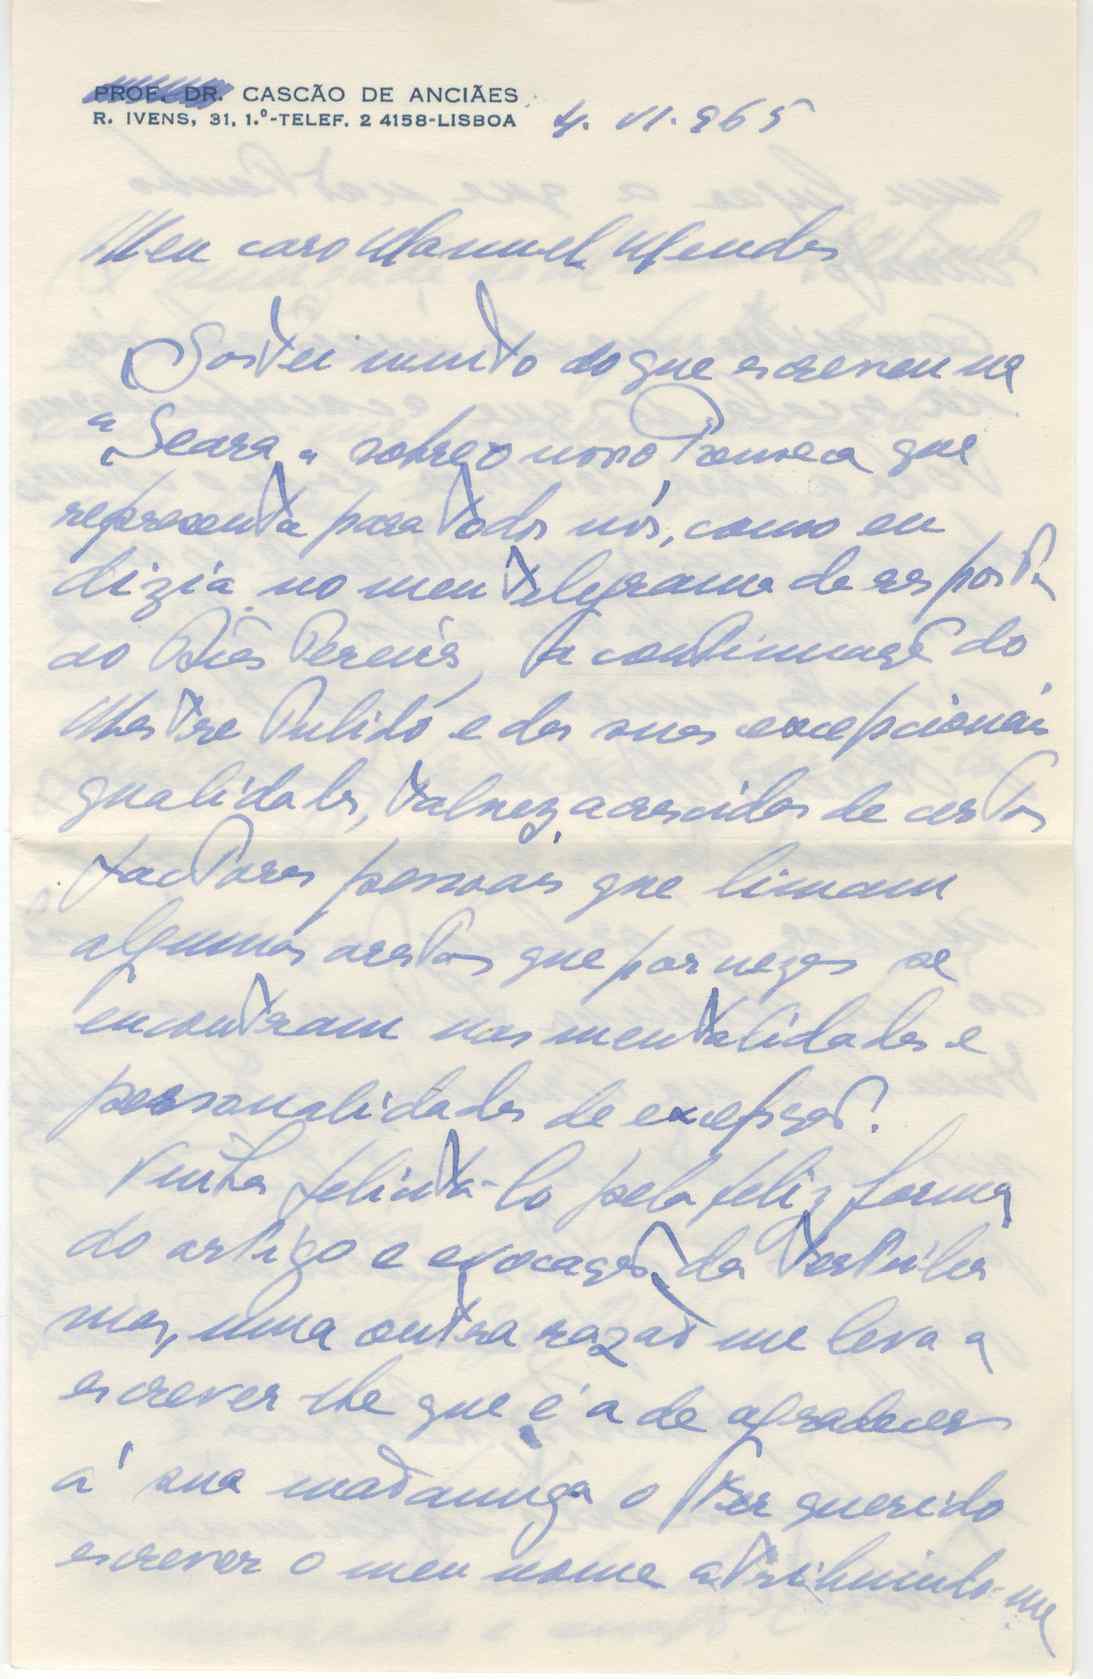 PROF. DR. CASCÃO DE ANCIÃES
R. IVENS, 31, 1.º-TELEF. 2 4158-LISBOA
4. VI. 965
Meu caro Manuel Mendes
Gostei muito do que escreveu na
"Seara" sobre o nosso Fonseca que
representa para todos nós, como eu
dizia no meu telegrama de resposta
ao Dias Pereira, a continuação do
Mestre Pulido e das suas excepcionais
qualidades, talvez acrescidas de certos
factores pessoais que limam
algumas arestas que por vezes se
encontram nas mentalidades e
personalidades de excepção.
Vinha felicitá-lo pela feliz forma
do artigo e evocação da tertúlia
mas, uma outra razão me leva a
escrever-lhe que é a de agradecer
á sua mão amiga o ter querido
escrever o meu nome atribuindo-me